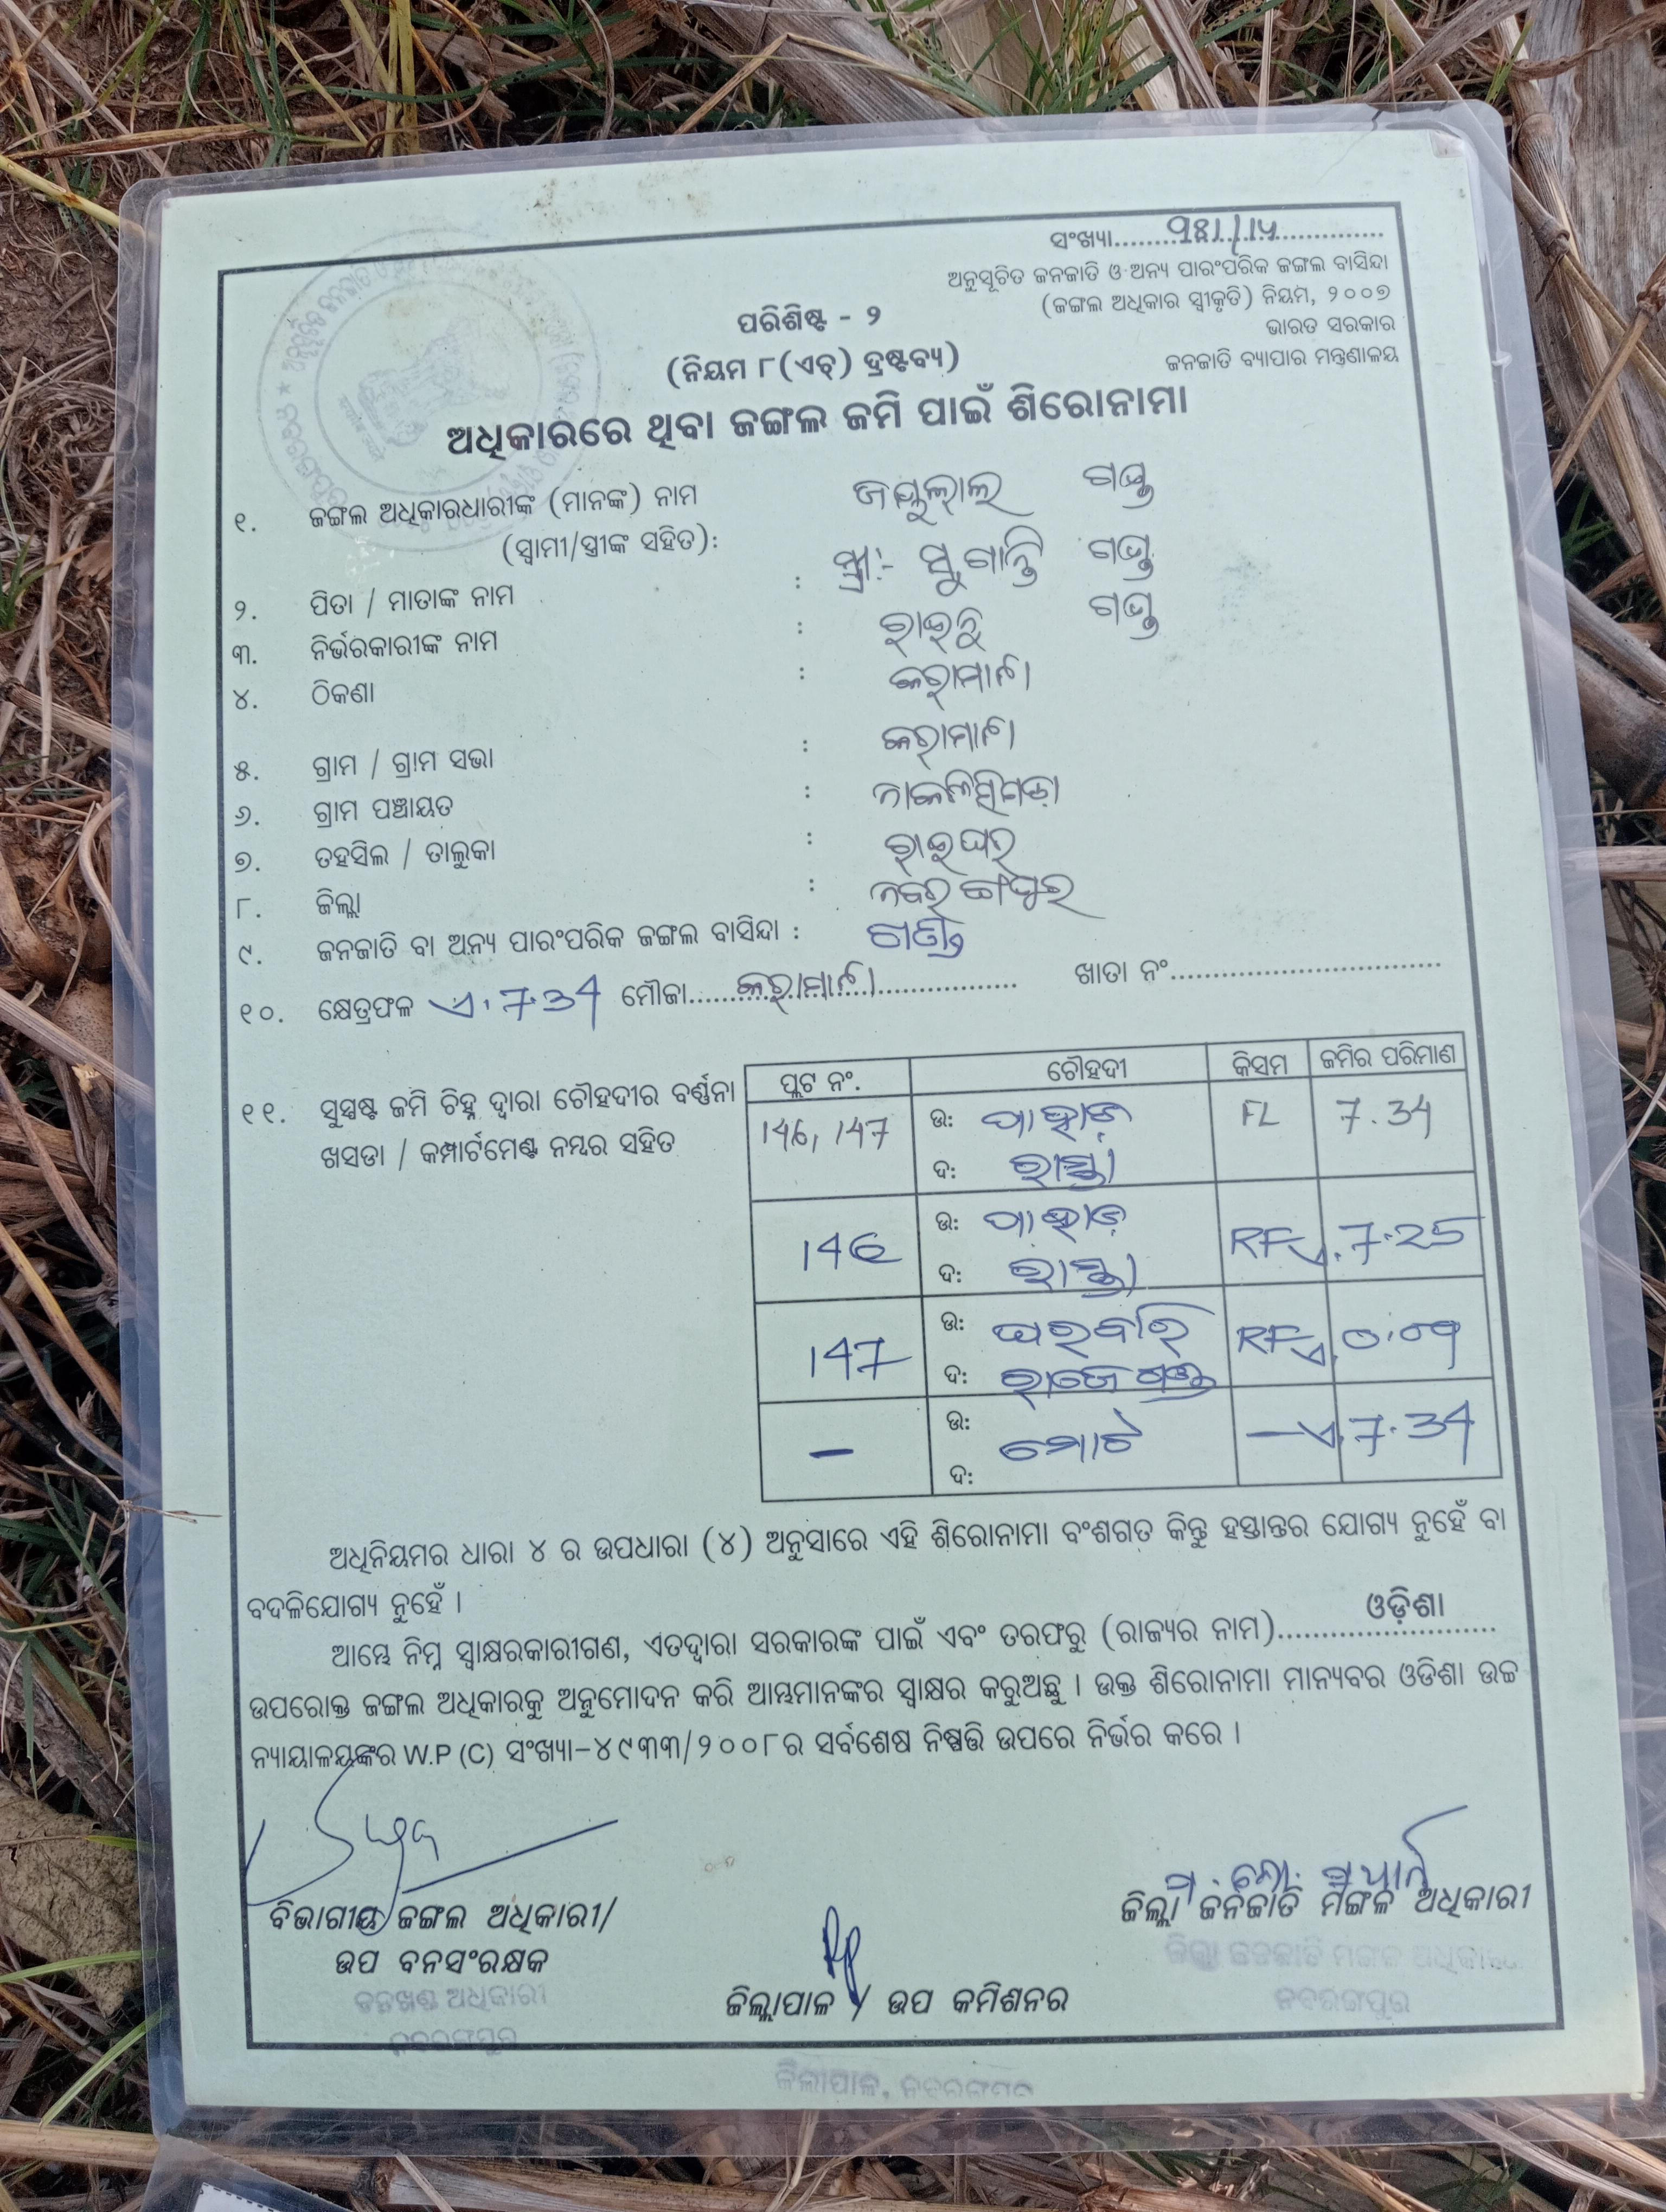 ସଂଖ୍ୟା
ଅନୁସୂଚିତ ଜନଜାତି ଓ ଅନ୍ୟ ପାରଂପରିକ ଜଙ୍ଗଲ ବାସିନ୍ଦା
(ଜଙ୍ଗଲ ଅଧିକାର ସ୍ୱୀକୃତି) ନିୟମ, ୨୦୦୭
ଭାରତ ସରକାର
ଜନଜାତି ବ୍ୟାପାର ମନ୍ତ୍ରଣାଳୟ
ପରିଶିଷ୍ଟ - ୨
(ନିୟମ ୮(ଏଚ୍) ଦ୍ରଷ୍ଟବ୍ୟ)
ଅଧିକାରରେ ଥିବା ଜଙ୍ଗଲ ଜମି ପାଇଁ ଶିରୋନାମା
୧. ଜଙ୍ଗଲ ଅଧିକାରଧାରୀଙ୍କ (ମାନଙ୍କ) ନାମ
(ସ୍ୱାମୀ/ସ୍ତ୍ରୀଙ୍କ ସହିତ):
୨. ପିତା / ମାତାଙ୍କ ନାମ :
୩. ନିର୍ଭରକାରୀଙ୍କ ନାମ :
୪. ଠିକଣା :
୫. ଗ୍ରାମ / ଗ୍ରାମ ସଭା :
୬. ଗ୍ରାମ ପଞ୍ଚାୟତ :
୭. ତହସିଲ / ତାଲୁକା : ରାଇଘର
୮. ଜିଲ୍ଲା : ନବରଙ୍ଗପୁର
୯. ଜନଜାତି ବା ଅନ୍ୟ ପାରଂପରିକ ଜଙ୍ଗଲ ବାସିନ୍ଦା : ଗଣ୍ଡ
୧୦. କ୍ଷେତ୍ରଫଳ ଏ. 7.34 ମୌଜା ଖାତା ନଂ
୧୧. ସୁସ୍ପଷ୍ଟ ଜମି ଚିହ୍ନ ଦ୍ୱାରା ଚୌହଦୀର ବର୍ଣ୍ଣନା
ଖସଡା / କମ୍ପାର୍ଟମେଣ୍ଟ ନମ୍ବର ସହିତ
ପ୍ଲଟ ନଂ. ଚୌହଦୀ କିସମ ଜମିର ପରିମାଣ
146, 147 ଉ: ପାହାଡ଼ FL 7.34
ଦ: ରାସ୍ତା
146 ଉ: ପାହାଡ଼ RF ଏ. 7.25
ଦ: ରାସ୍ତା
147 ଉ: ଘରବାରି RF ଏ. 0.09
ଦ:
– ଉ: ମୋଟ – ଏ. 7.34
ଦ:
ଅଧିନିୟମର ଧାରା ୪ ର ଉପଧାରା (୪) ଅନୁସାରେ ଏହି ଶିରୋନାମା ବଂଶଗତ କିନ୍ତୁ ହସ୍ତାନ୍ତର ଯୋଗ୍ୟ ନୁହେଁ ବା
ବଦଳିଯୋଗ୍ୟ ନୁହେଁ ।
ଆମ୍ଭେ ନିମ୍ନ ସ୍ୱାକ୍ଷରକାରୀଗଣ, ଏତଦ୍ୱାରା ସରକାରଙ୍କ ପାଇଁ ଏବଂ ତରଫରୁ (ରାଜ୍ୟର ନାମ) ଓଡ଼ିଶା
ଉପରୋକ୍ତ ଜଙ୍ଗଲ ଅଧିକାରକୁ ଅନୁମୋଦନ କରି ଆମ୍ଭମାନଙ୍କର ସ୍ୱାକ୍ଷର କରୁଅଛୁ । ଉକ୍ତ ଶିରୋନାମା ମାନ୍ୟବର ଓଡିଶା ଉଚ୍ଚ
ନ୍ୟାୟାଳୟଙ୍କର W.P (C) ସଂଖ୍ୟା-୪୯୩୩/୨୦୦୮ର ସର୍ବଶେଷ ନିଷ୍ପତ୍ତି ଉପରେ ନିର୍ଭର କରେ ।
ବିଭାଗୀୟ ଜଙ୍ଗଲ ଅଧିକାରୀ/
ଉପ ବନସଂରକ୍ଷକ
ଜିଲ୍ଲାପାଳ / ଉପ କମିଶନର
ଜିଲ୍ଲା ଜନଜାତି ମଙ୍ଗଳ ଅଧିକାରୀ
ଜିଲ୍ଲା ଜନଜାତି ମଙ୍ଗଳ ଅଧିକାରୀ
ନବରଙ୍ଗପୁର
ବନଖଣ୍ଡ ଅଧିକାରୀ
ନବରଙ୍ଗପୁର
ଜିଲ୍ଲାପାଳ, ନବରଙ୍ଗପୁର